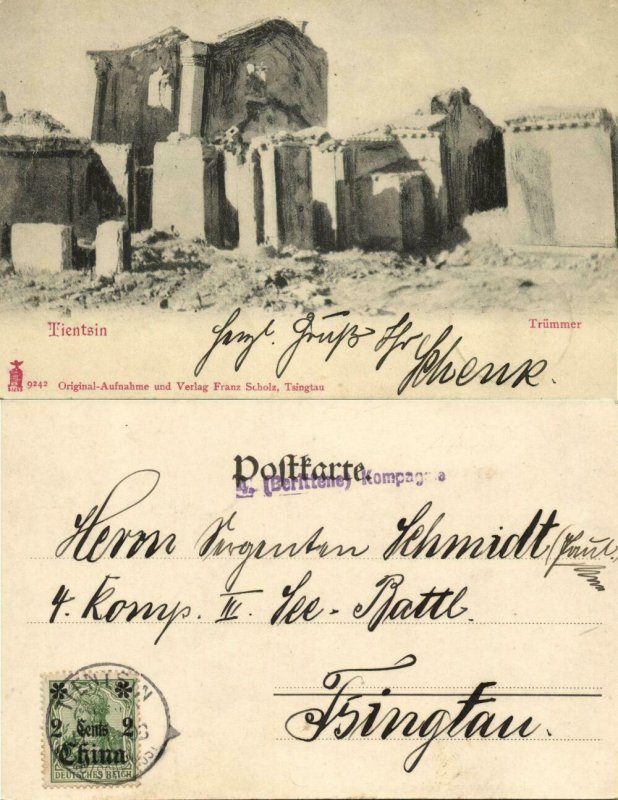 Tientsin
Trümmer
Herzl. Gruß Ihr
Schenk.
9242 Original-Aufnahme und Verlag Franz Scholz, Tsingtau
Postkarte.
4. (Berittene) Kompagnie
Herrn Sergenten Schmidt (Paul)
4. Komp. III. See-Battl.
Tsingtau.
TIENTSIN
2 Cents 2
China
DEUTSCHES REICH